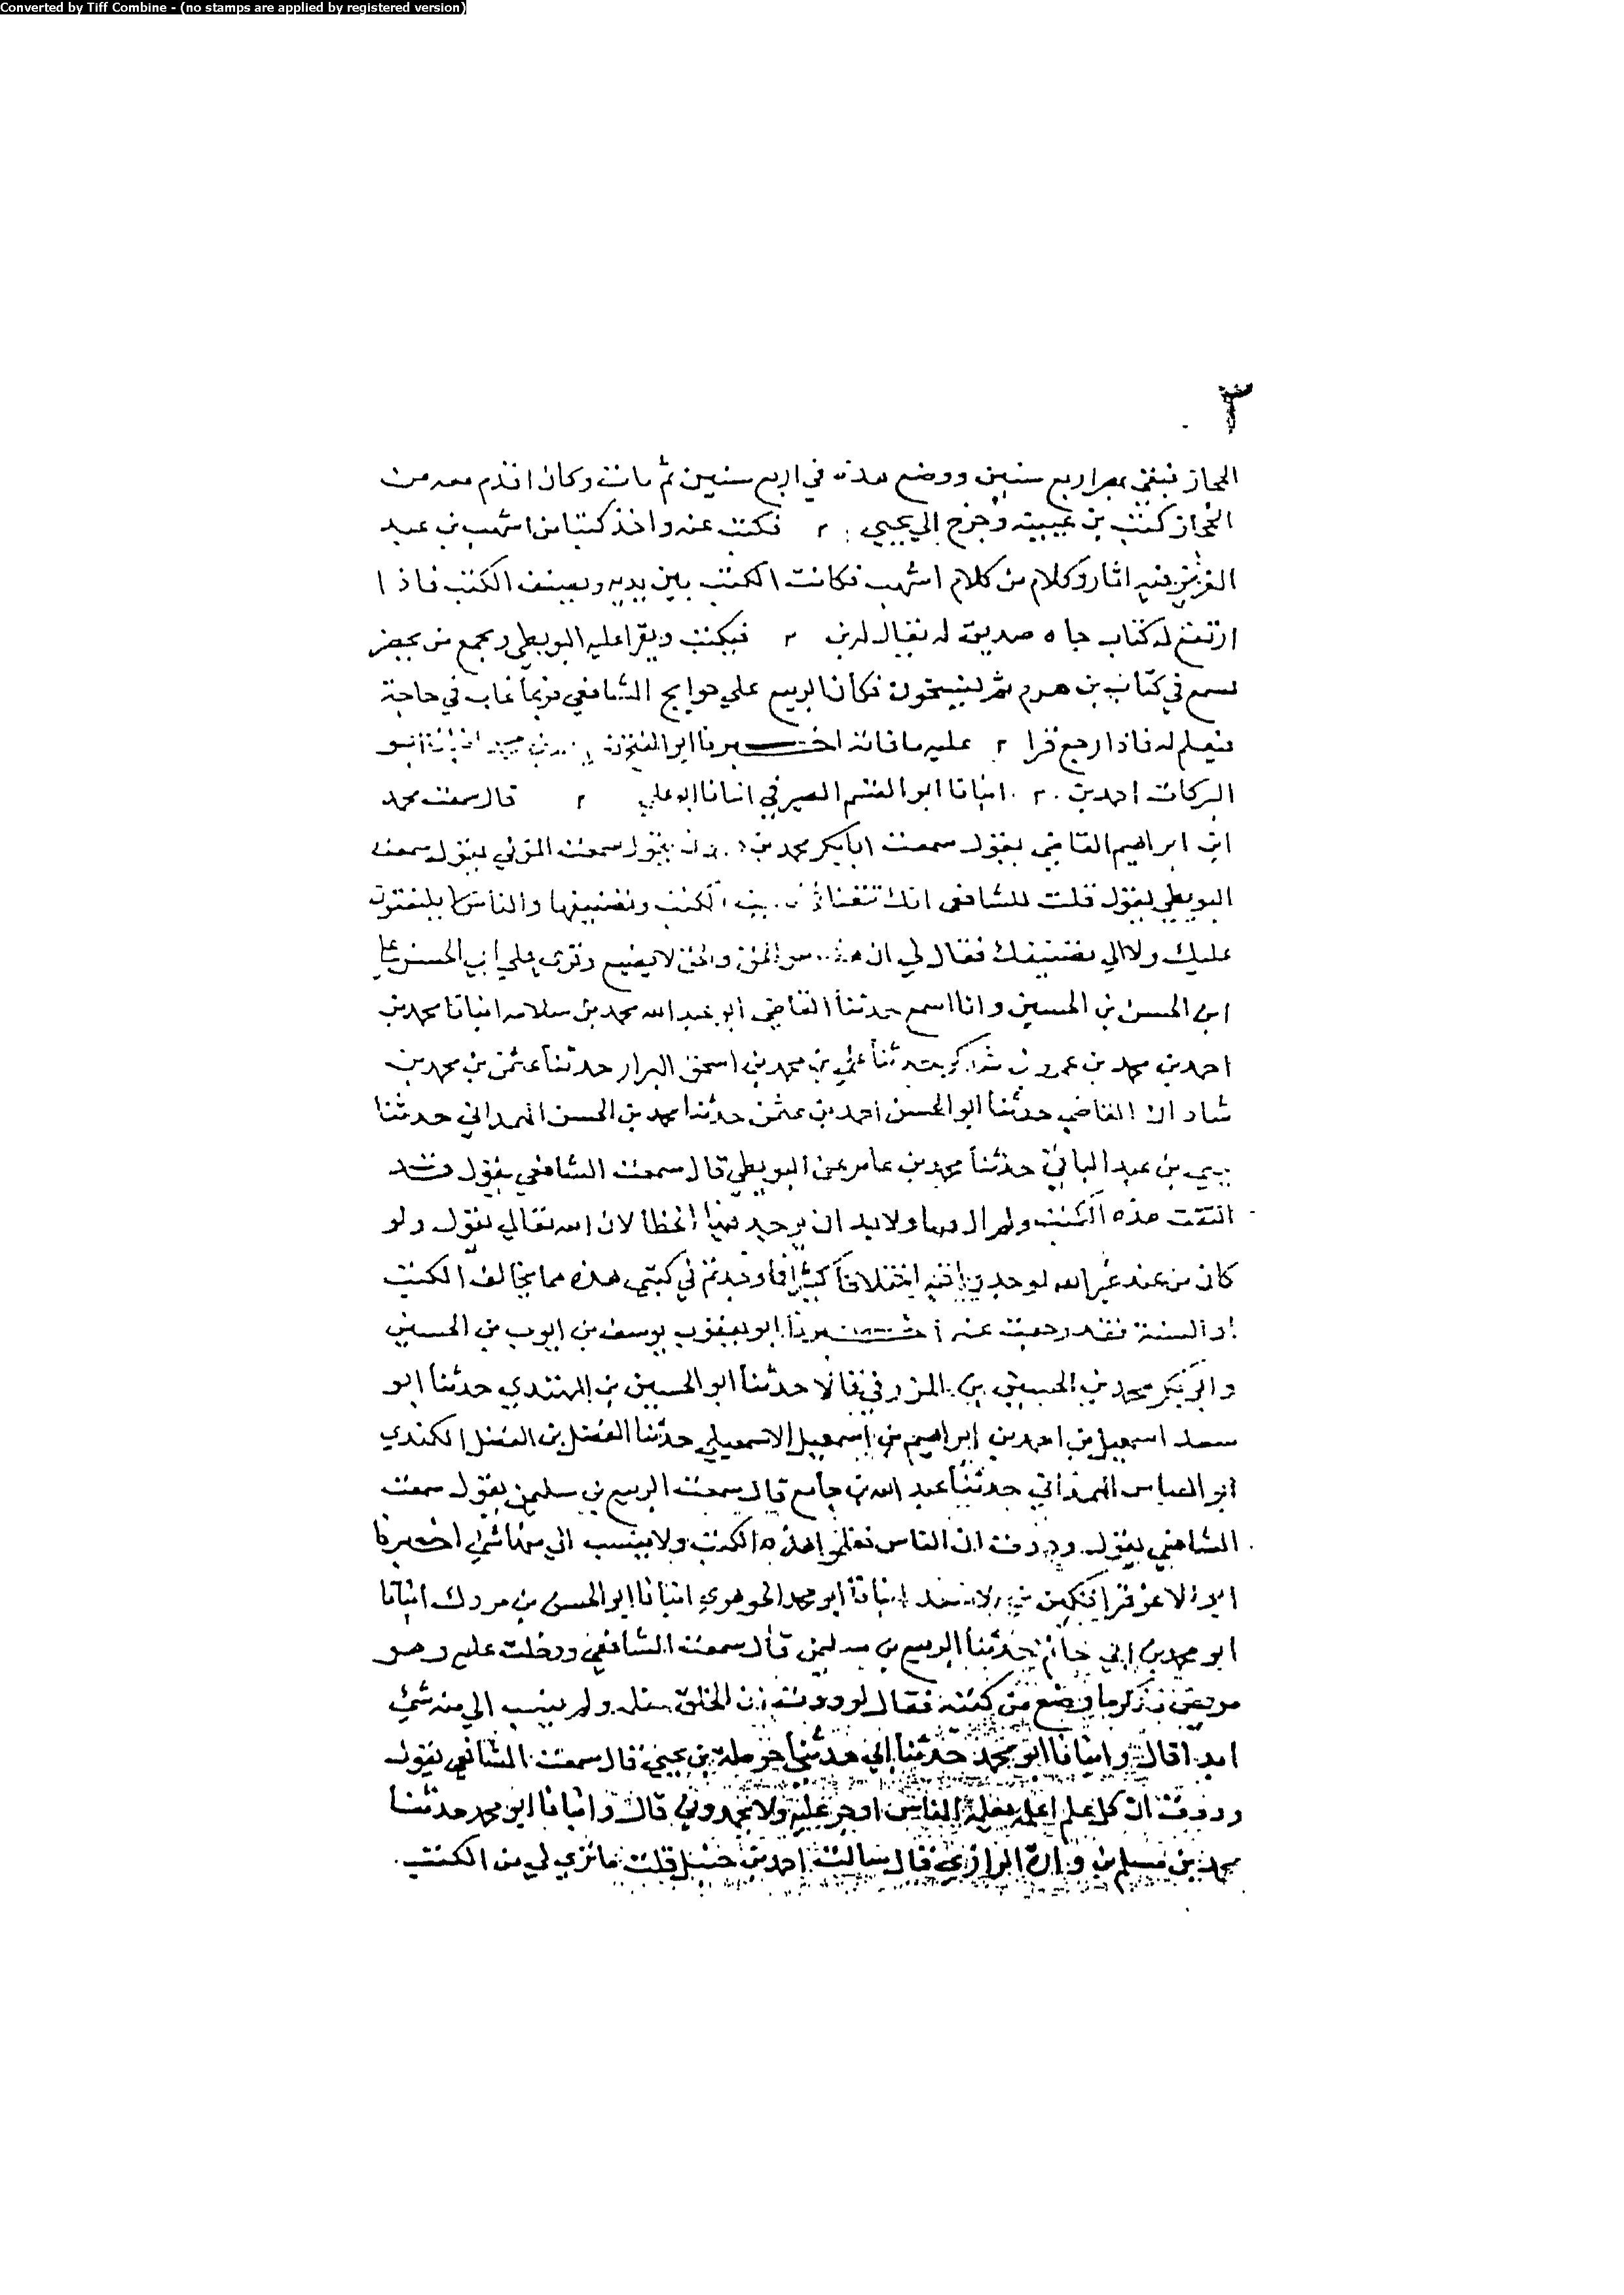 Converted by Tiff Combine - (no stamps are applied by registered version)
٣
الحجاز فبقي بمصر اربع سنين ووضع هذه في اربع سنين ثم مات وكان اقدم معه من
الحجاز كتب بن عيينه وخرج الي يحيي ٢ فكتب عنه واخذ كتبا من اشهب بن عبد
العزيز فيه اثار وكلام من كلام اشهب فكانت الكتب بين يديه ويصنف الكتب فاذا
ارتفع له كتاب جاه صديق له يقال له بن ٢ فيكتب ويقرا عليه البويطي ويجمع من يحضر
يسمع في كتاب بن هرم ثم ينسخون فكان الربيع علي حوايج الشافعي فربما غاب في حاجة
فيعلم له فاذا رجع قرا ٢ عليه ما فاته اخبرنا ابو الفتح انبانا ابو
البركات احمد بن ٢ انبانا ابو القسم الصيرفي انبانا ابو علي ٢ قال سمعت محمد
ابن ابراهيم القاضي يقول سمعت ابا بكر محمد بن يقول سمعت المزني يقول سمعت
البويطي يقول قلت للشافعي انك الكتب وتصنيفها والناس لا يلتفتون
عليك ولا الي تصنيفك فقال لي ان هذا هو الحق والحق لا يضيع وقري علي ابي الحسن علي
ابن الحسن بن الحسين وانا اسمع حدثنا القاضي ابو عبد الله محمد بن سلامه انبانا محمد بن
احمد بن محمد بن عمرو بن شاكر حدثنا علي بن محمد بن اسحق البزار حدثنا عثمن بن محمد بن
شاد ان القاضي حدثنا ابو الحسن احمد بن عثمن حدثنا محمد بن الحسن الهمداني حدثنا
يحيي بن عبد الباقي حدثنا محمد بن عامر عن البويطي قال سمعت الشافعي يقول قد
الفت هذه الكتب ولم ال فيها ولا بد ان يوجد فيها الخطا لان الله تعالي يقول ولو
كان من عند غير الله لوجدوا فيه اختلافا كثيرا فما وجدتم في كتبي هذه مما يخالف الكتب
او السنة فقد رجعت عنه اخبرنا ابو يعقوب يوسف بن ايوب بن الحسين
وابو بكر محمد بن الحسين بن المزرفي قالا حدثنا ابو الحسين بن المهتدي حدثنا ابو
سعد اسمعيل بن احمد بن ابراهيم بن اسمعيل الاسمعيلي حدثنا الفضل بن الفضل الكندي
ابو العباس الهمذاني حدثنا عبد الله بن جامع قال سمعت الربيع بن سليمن يقول سمعت
الشافعي يقول وددت ان الناس تعلموا هذه الكتب ولا ينسب الي منها شي اخبرنا
ابو الاعز قراتكين بن الاسعد انبانا ابو محمد الجوهري انبانا ابو الحسن بن مردك انبانا
ابو محمد بن ابي حاتم حدثنا الربيع بن سليمن قال سمعت الشافعي ودخلت عليه وهو
مريض فذكر ما وضع من كتبه فقال لوددت ان الخلق تعلمه ولم ينسب الي منه شي
ابدا قال وانبانا ابو محمد حدثنا ابي حدثني حرملة بن يحيي قال سمعت الشافعي يقول
وددت ان كل علم اعلمه تعلمه الناس اوجر عليه ولا يحمدوني قال وانبانا ابو محمد حدثنا
محمد بن مسلم بن وارة الرازي قال سالت احمد بن حنبل قلت ما تري لي من الكتب